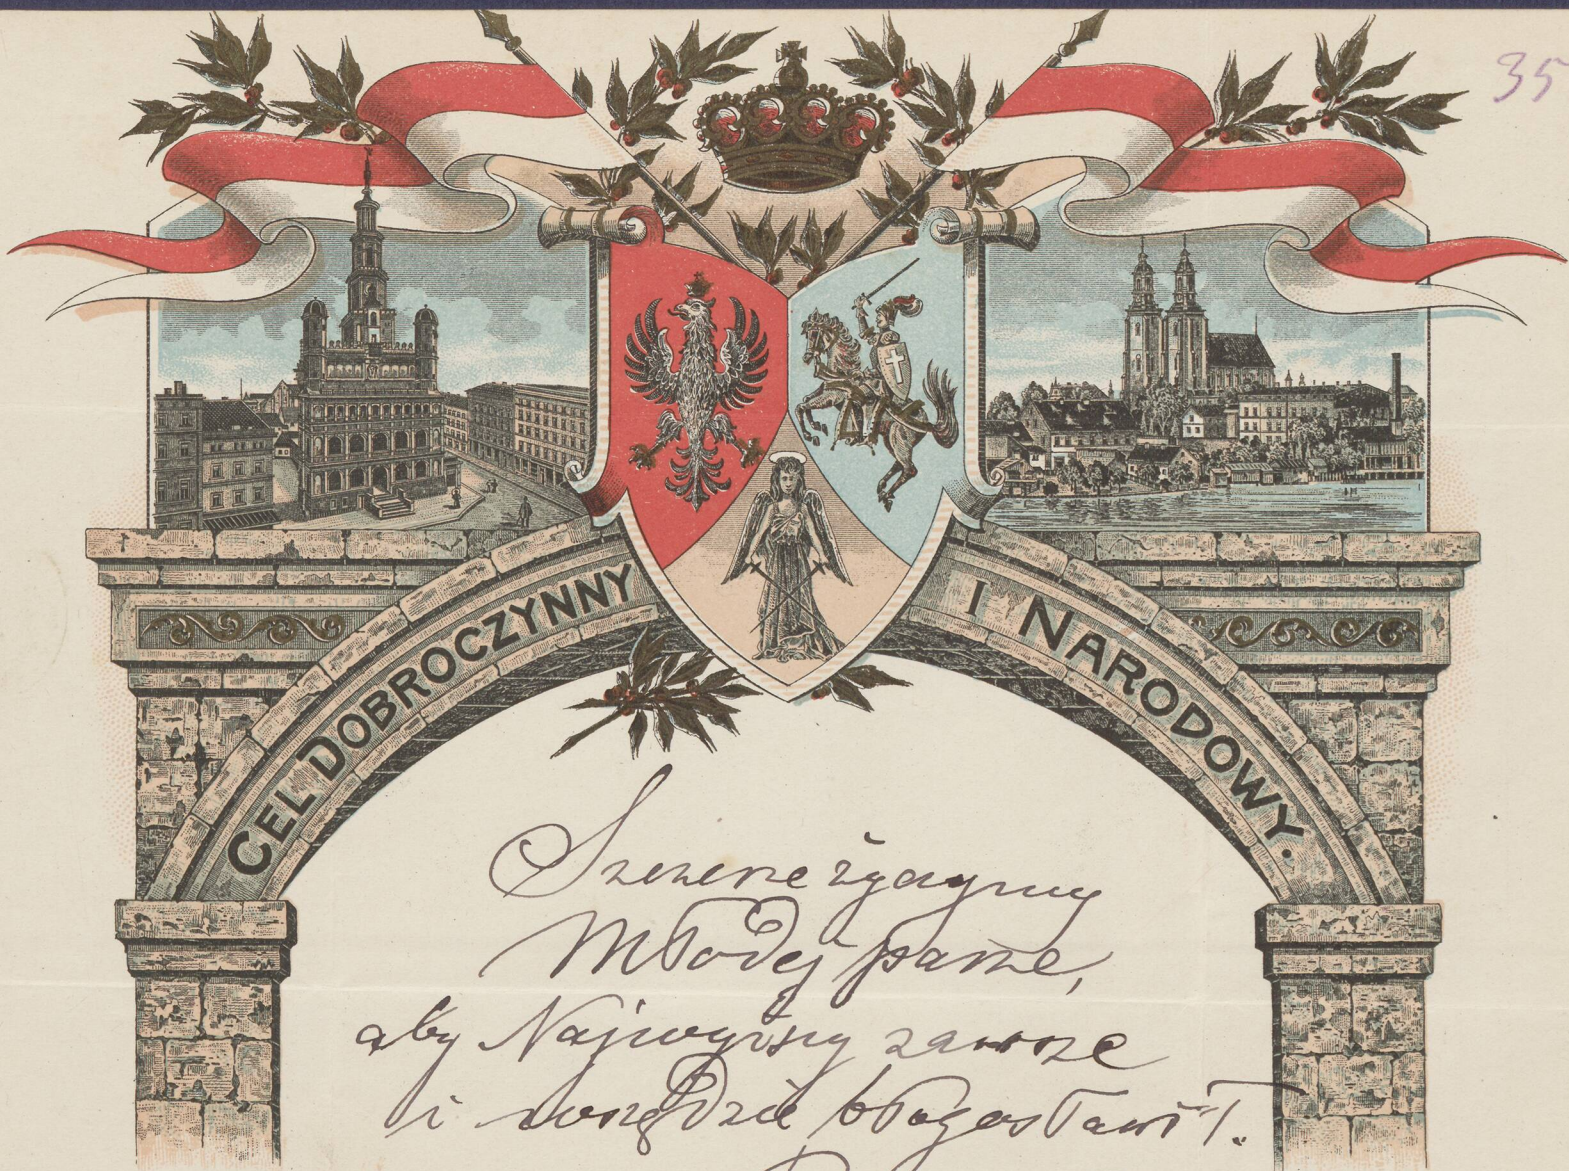 35
CEL DOBROCZYNNY I NARODOWY.
Szczerze życzymy
Młodej parze,
aby Najwyższy zawsze
i wszędzie błogosławił.